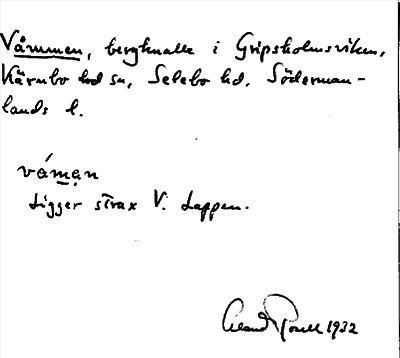 Vårmmen, bergknalle i Gripsholmsviken,
Kärnbo lod sn, Selebo hd, Söderman-
lands l.
våmạn
Ligger strax V. Lappen.
1932